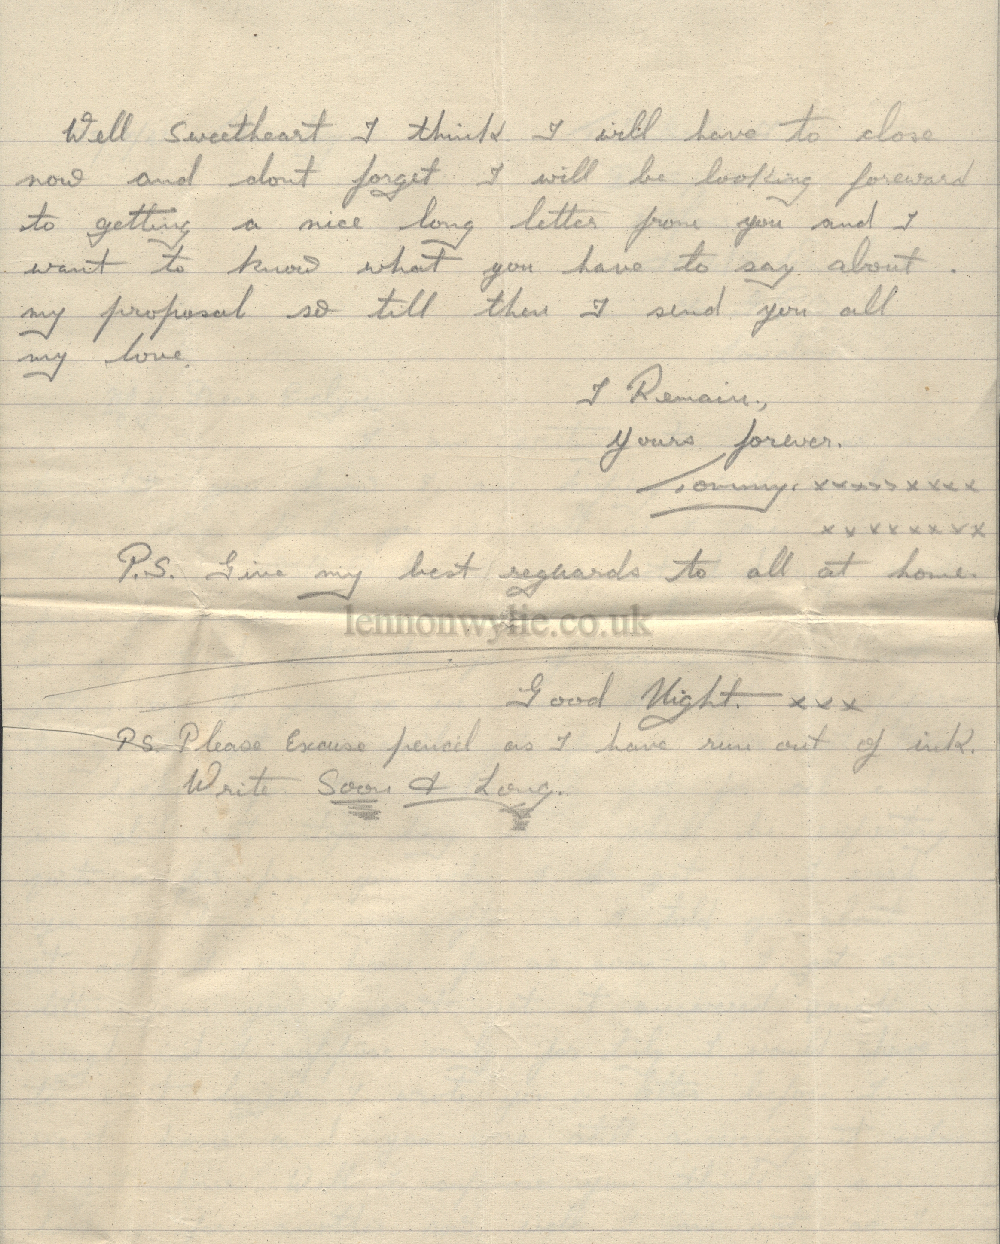 Well Sweetheart I think I will have to close
now and dont forget I will be looking foreward
to getting a nice long letter from you and I
want to know what you have to say about .
my proposal so till then I send you all
my love.
I Remain.,
Yours forever.
Tommy. xxxxxxxxx
xxxxxxxxx
P.S. Give my best reguards to all at home.
lennonwylie.co.uk
Good Night. xxx
P.S. Please Excuse pencil as I have run out of ink.
Write Soon & Long.